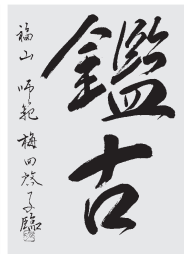 鑑古
福山 師範 梅田啓子臨